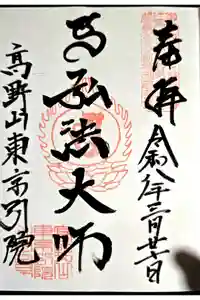 奉拝
令和八年三月廿七日
弘法大師
高野山東京別院